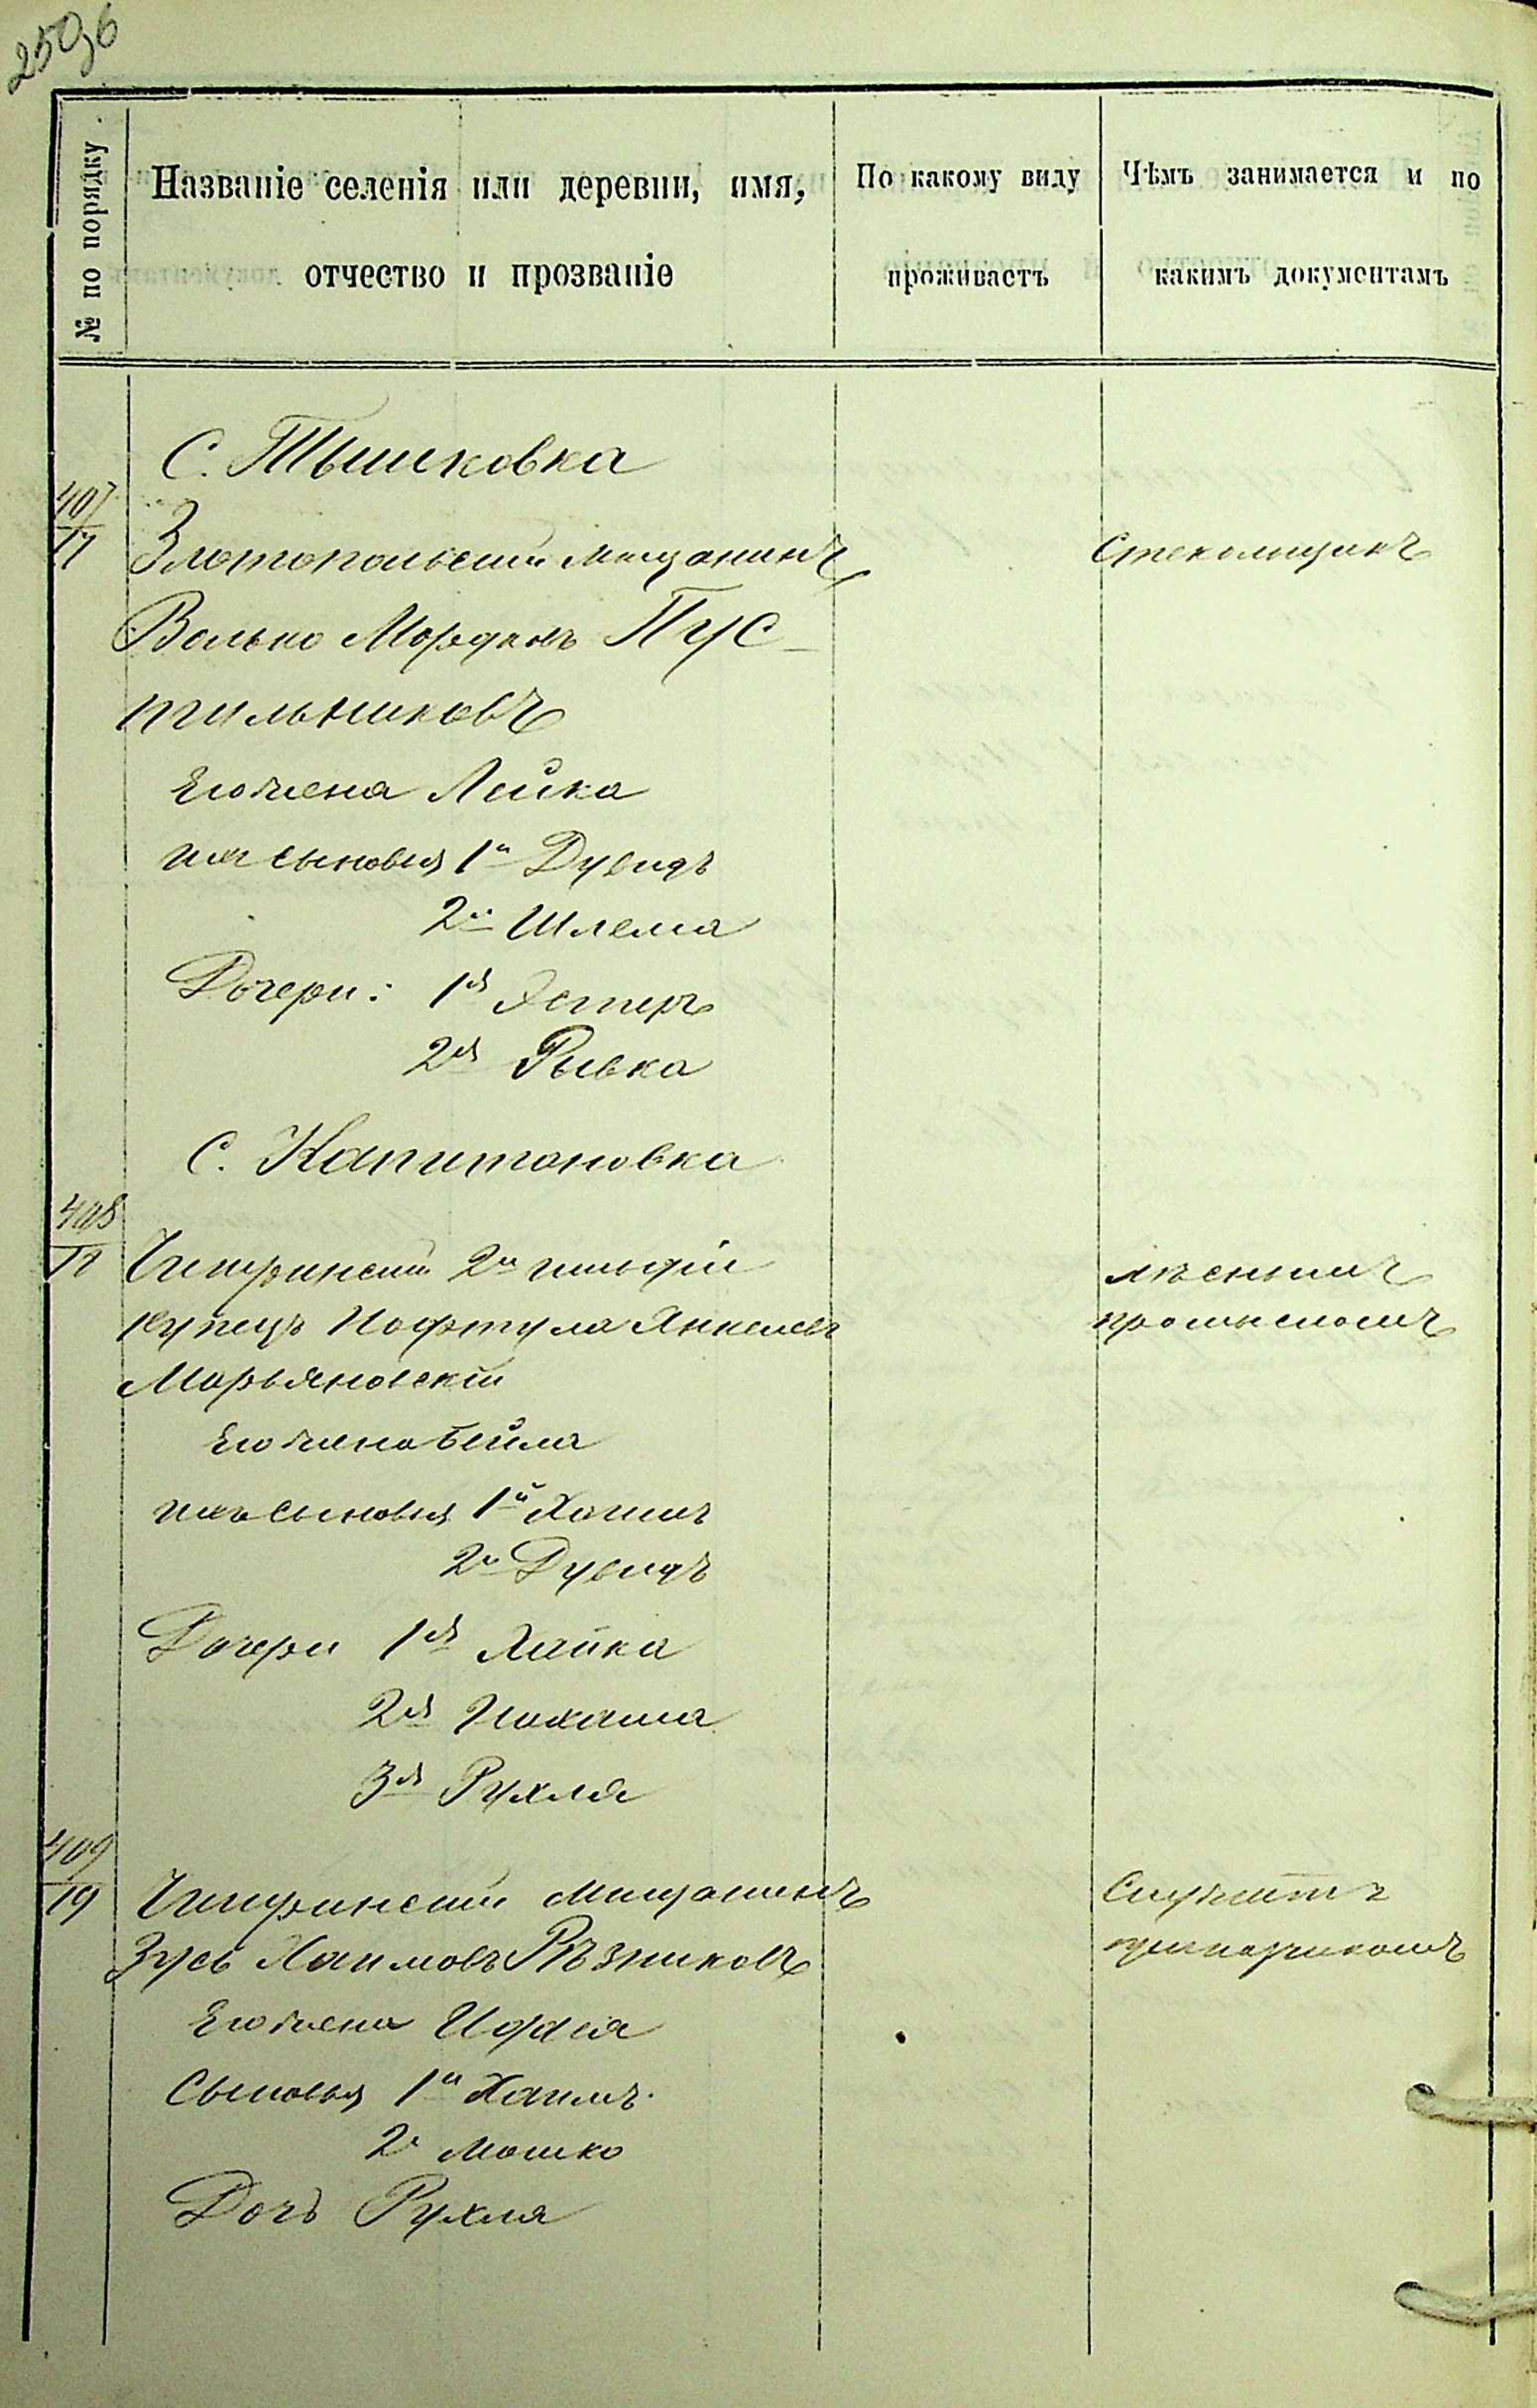 250об
№ по порядку
Названіе селенія или деревни, имя,
отчество и прозваніе
По какому виду
проживаетъ
Чѣмъ занимается и по
какимъ документамъ
С. Тышковка
407
17
Златопольскій мещанинъ
Стекольщикъ
Волько Мордковъ Пус-
тильниковъ
Его жена Лейка
ихъ сыновья 1й Дувидъ
2й Шлема
Дочери: 1я Эстеръ
2я Рывка
С. Капитановка
408
Чигиринскій 2й гильдіи
лѣснымъ
купецъ Нафтула Янкелевъ
промысломъ
Марьяновскій
Его жена Бейла
ихъ сыновья 1й Хаимъ
2й Дувидъ
Дочери 1я Хайка
2я Нехама
3я Рухля
409
19
Чигиринскій мещанинъ
Служитъ
Зусь Хаимовъ Рѣзниковъ
Его жена
Сыновья 1й Хаимъ
2й Мошко
Дочь Рухля